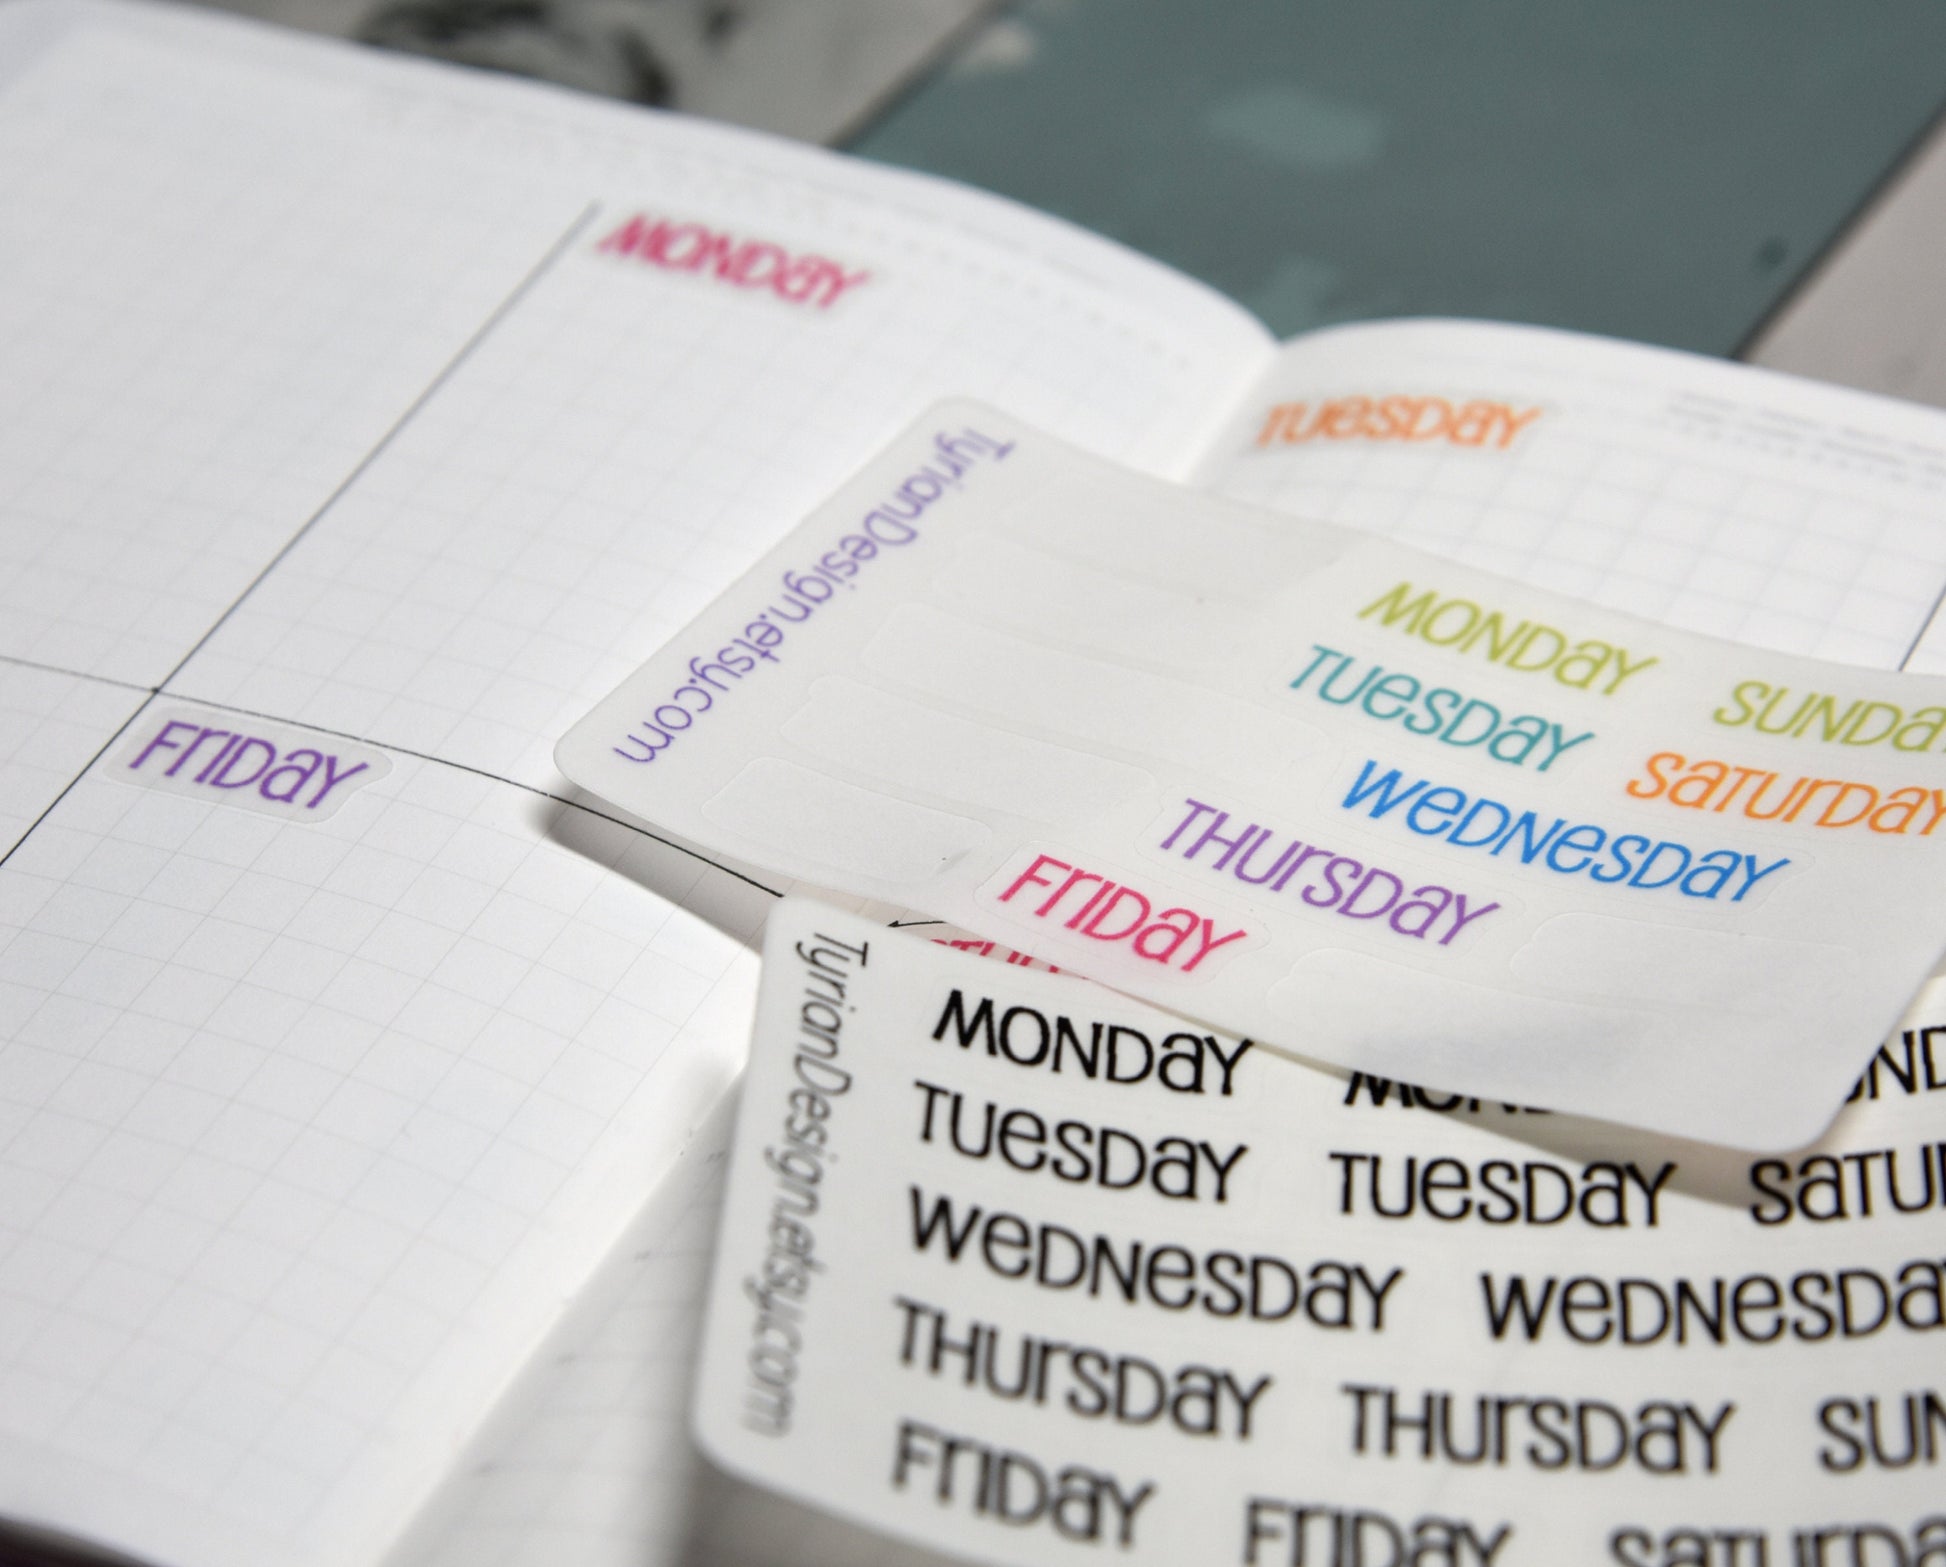 MONDAY
TUESDAY
FRIDAY
TyrianDesign.etsy.com
MONDAY SUNDAY
TUESDAY SATURDAY
WEDNESDAY
THURSDAY
FRIDAY
TyrianDesign.etsy.com
MONDAY MON
TUESDAY TUESDAY SATUR
WEDNESDAY WEDNESDAY
THURSDAY THURSDAY SUN
FRIDAY FRIDAY SATURDA